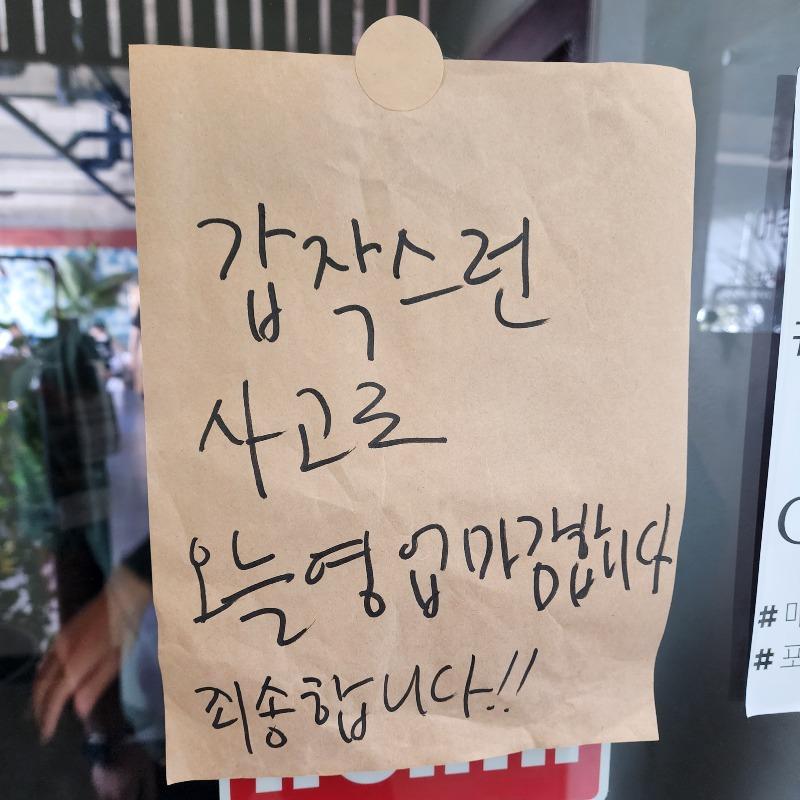 갑작스런
사고로
오늘 영업마감합니다
죄송합니다!!
#
#